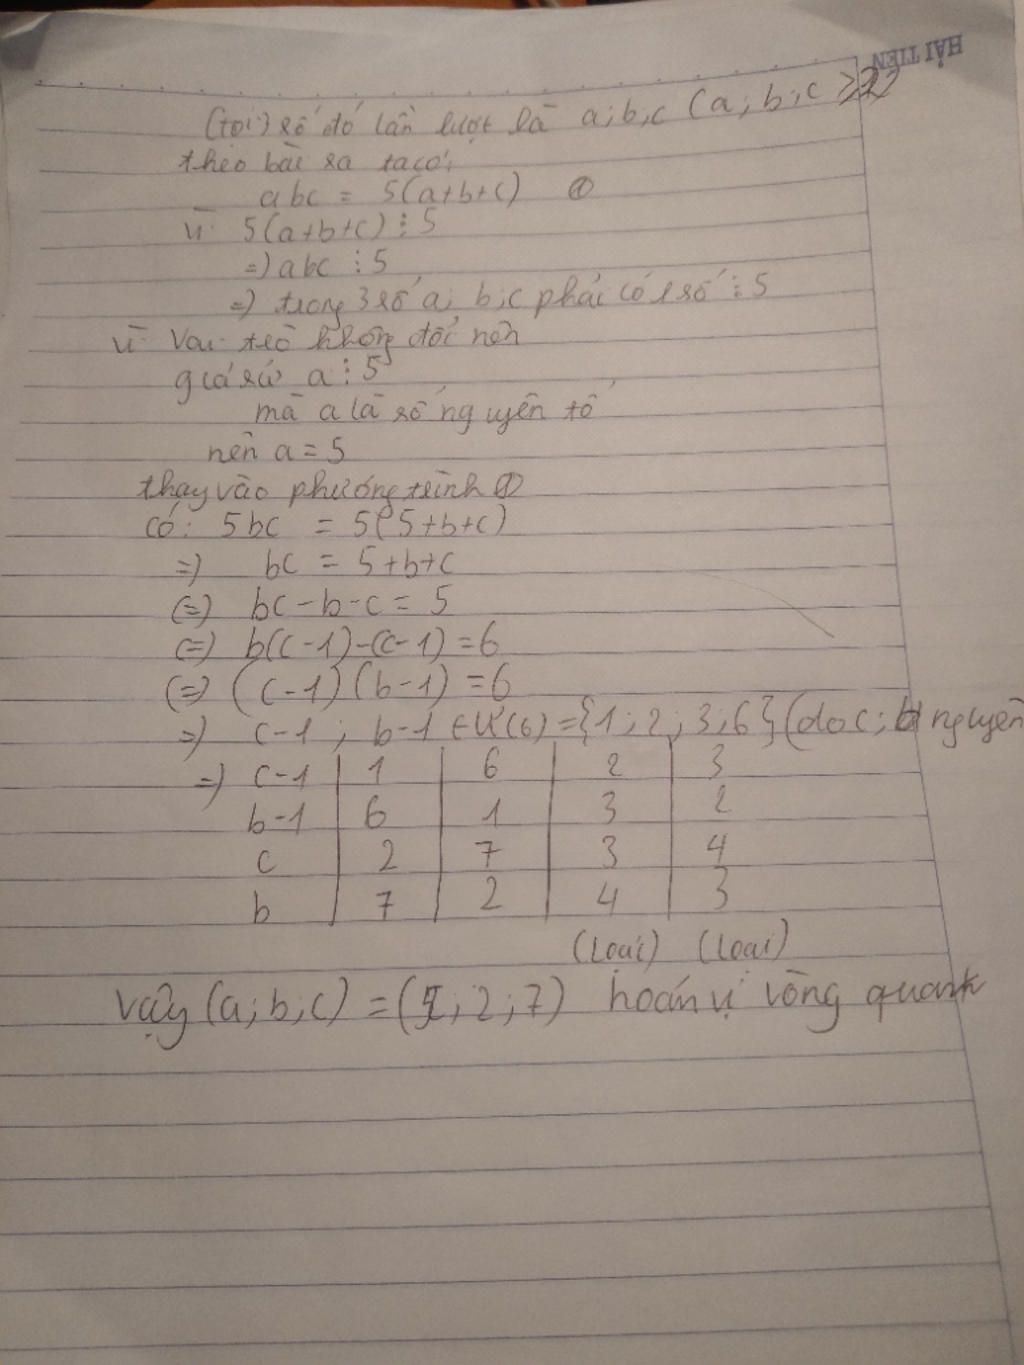 HẢI TIẾN
(gọi) số đó lần lượt là a;b,c (a; b;c ≥2)
theo bài ra ta có:
abc = 5(a+b+c) ①
vì 5(a+b+c) ⋮ 5
=) abc ⋮ 5
=) trong 3 số a; b;c phải có 1 số ⋮ 5
vì vai trò không đổi nên
giả sử a ⋮ 5
mà a là số nguyên tố
nên a = 5
thay vào phương trình ①
có: 5bc = 5(5+b+c)
=) bc = 5+b+c
(=) bc-b-c = 5
(=) b(c-1)-(c-1) = 6
(=) (c-1)(b-1) = 6
=) c-1 ; b-1 ∈ Ư(6) = {1; 2; 3; 6} (do c; b nguyên
=) c-1 | 1 | 6 | 2 | 3
b-1 | 6 | 1 | 3 | 2
c | 2 | 7 | 3 | 4
b | 7 | 2 | 4 | 3
(loại) (loại)
vậy (a;b;c) = (5; 2; 7) hoán vị vòng quanh